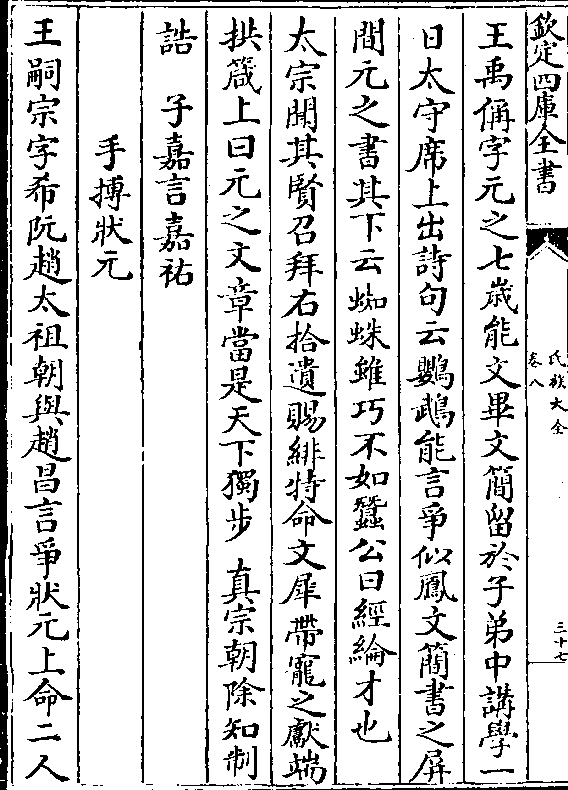 欽定四庫全書
氏族大全
卷八
三十七
王禹偁字元之七歲能文畢文簡留於子弟中講學一
日太守席上出詩句云鸚鵡能言爭似鳳文簡書之屏
間元之書其下云蜘蛛雖巧不如蠶公曰經綸才也
太宗聞其賢召拜右拾遺賜緋特命文犀帶寵之獻端
拱箴上曰元之文章當是天下獨步 真宗朝除知制
誥 子嘉言嘉祐
手搏狀元
王嗣宗字希阮趙太祖朝與趙昌言爭狀元上命二人